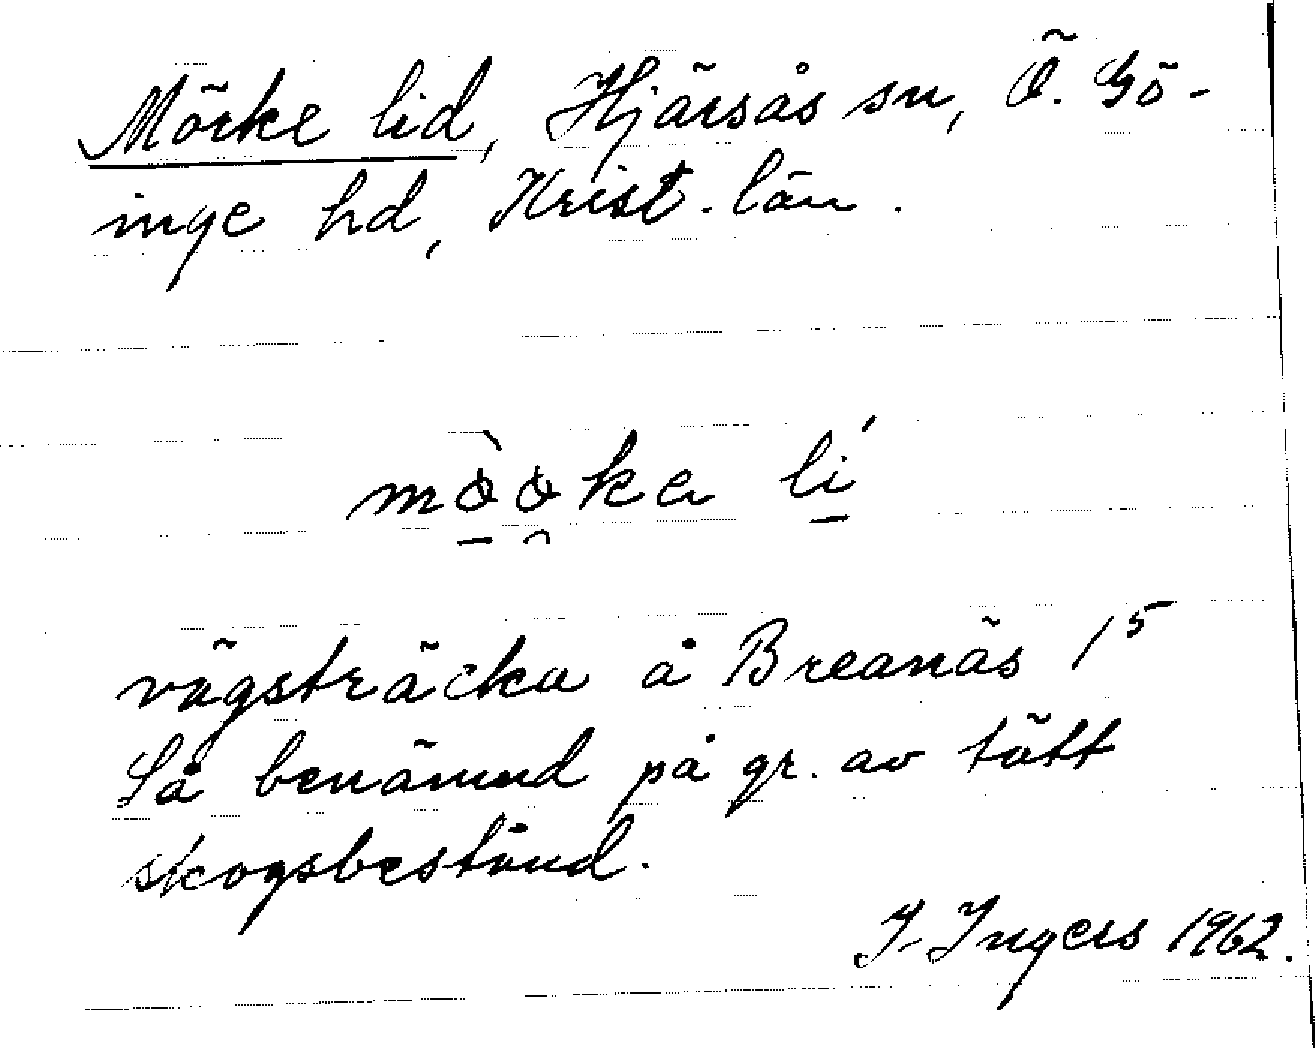 Mörke lid, Hjärsås sn, Ö. Gö-
inge hd, Krist. län.
mò̱ø̯ka lí̱
vägsträcka å Breanäs 1⁵
Så benämnd på gr. av tätt
skogsbestånd.
I. Ingers 1962.